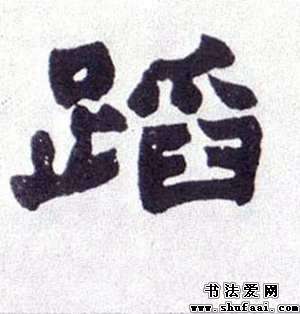 蹈
书法爱网
www.shufaai.com